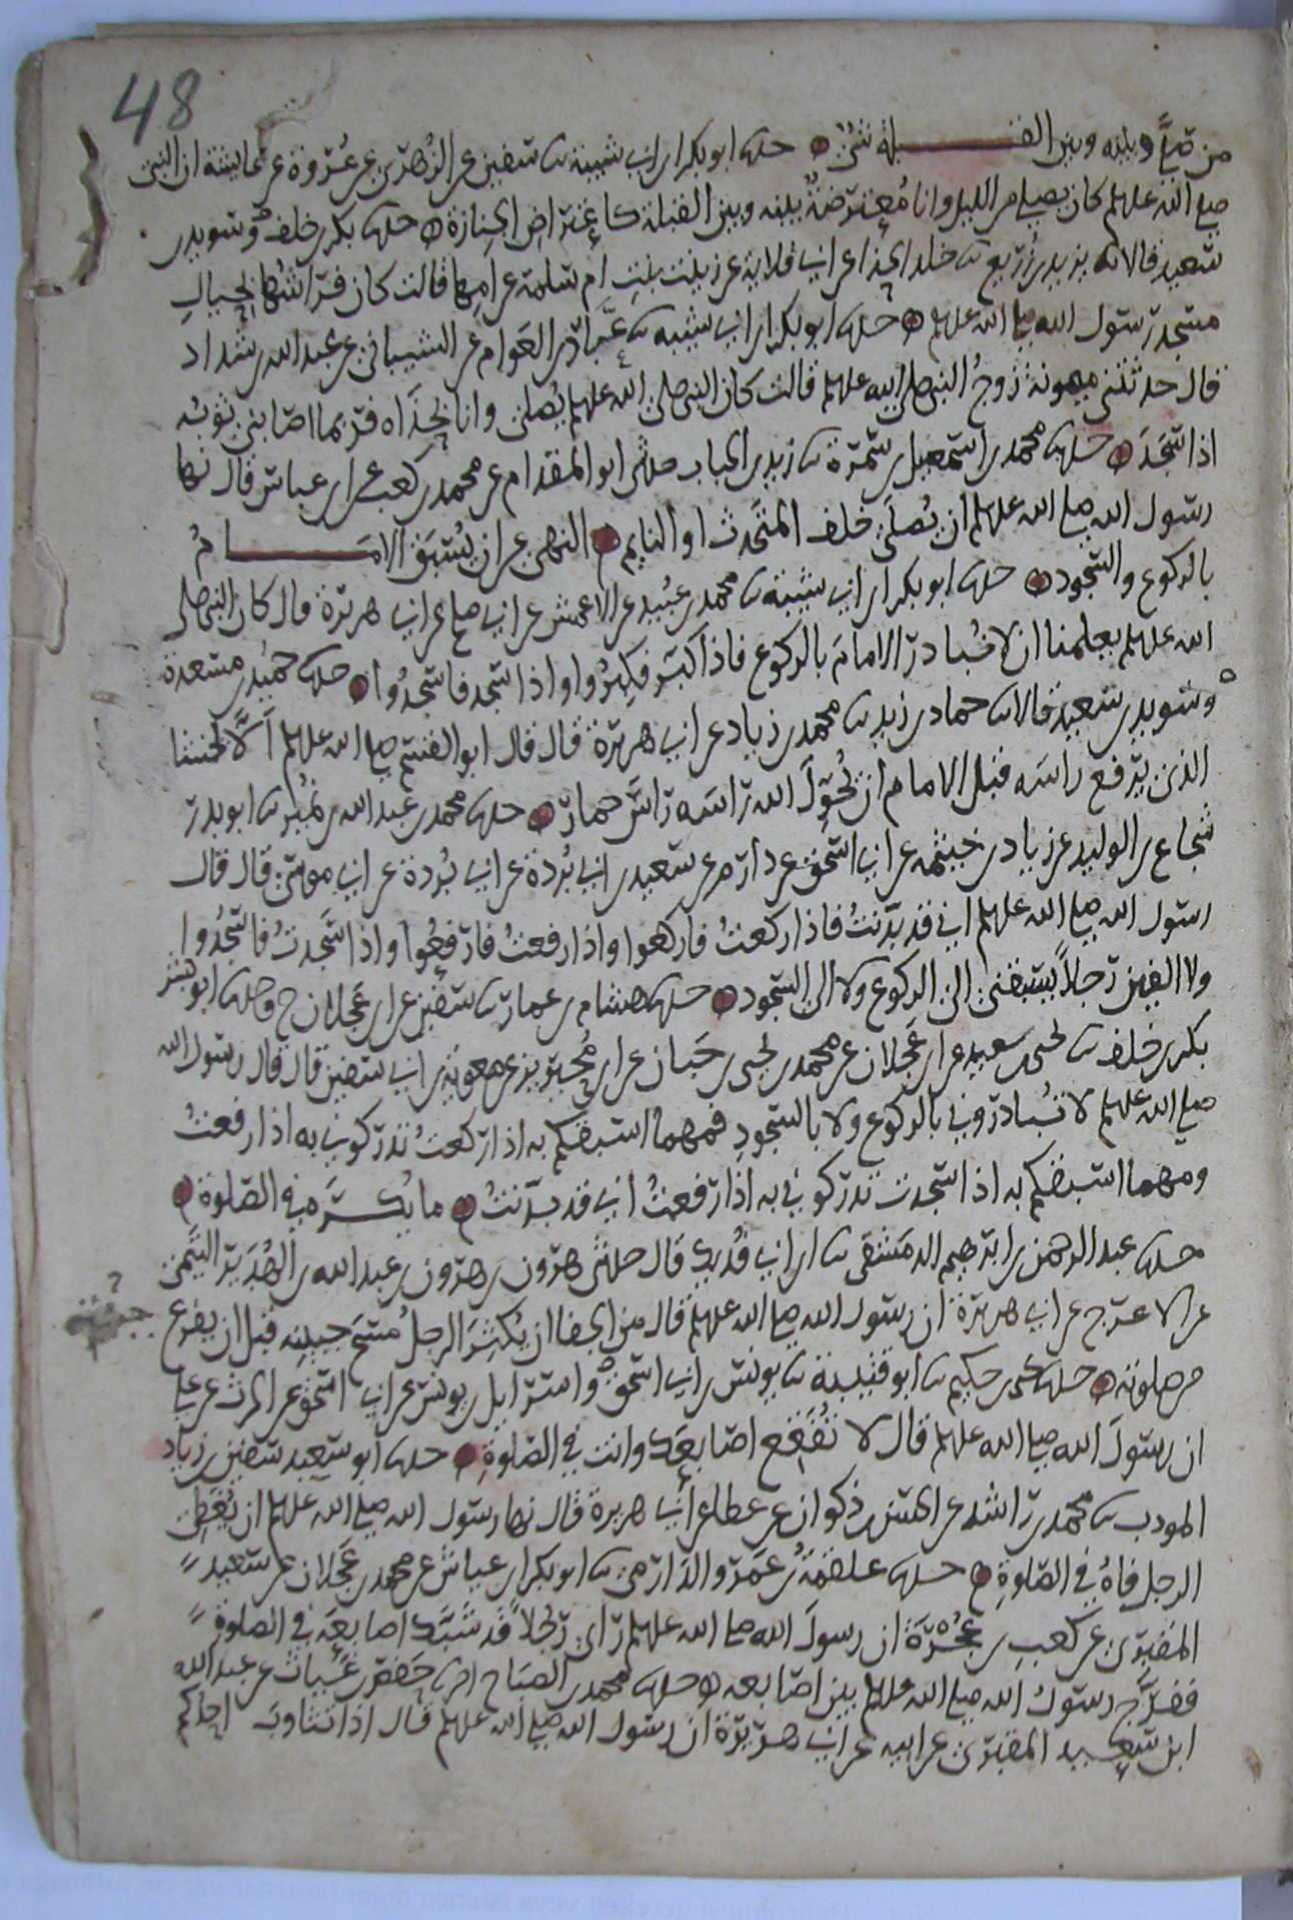 48
من صلى وبينه وبين القبلة شيء حدثنا ابو بكر ابن ابي شيبة ثنا سفين عن الزهري عن عروة عن عايشة ان النبي
صلى الله عليه وسلم كان يصلي من الليل وانا معترضة بينه وبين القبلة كاعتراض الجنازة حدثنا بكر بن خلف وسويد بن
سعيد قالا ثنا يزيد بن زريع ثنا خلد الحذا عن ابي قلابة عن زينب بنت ام سلمة عن امها قالت كان فراشها بحيال
مسجد رسول الله صلى الله عليه وسلم حدثنا ابو بكر ابن ابي شيبة ثنا عباد بن العوام عن الشيباني عن عبد الله بن شداد
قال حدثتني ميمونة زوج النبي صلى الله عليه وسلم قالت كان النبي صلى الله عليه وسلم يصلي وانا بحذاه فربما اصابني ثوبه
اذا سجد حدثنا محمد بن اسمعيل بن سمرة ثنا زيد بن الحباب حدثني ابو المقدام عن محمد بن كعب عن ابن عباس قال نها
رسول الله صلى الله عليه وسلم ان يصلى خلف المتحدث او النايم النهي عن ان يسبق الامام
بالركوع والسجود حدثنا ابو بكر ابن ابي شيبة ثنا محمد بن عبيد عن الاعمش عن ابي صلح عن ابي هريرة قال كان النبي صلى
الله عليه وسلم يعلمنا ان لا نبادر الامام بالركوع فاذا كبر فكبروا واذا سجد فاسجدوا حدثنا حميد بن مسعدة
وسويد بن سعيد قالا ثنا حماد بن زيد ثنا محمد بن زياد عن ابي هريرة قال قال ابو القسم صلى الله عليه وسلم الا يخشا
الذي يرفع راسه قبل الامام ان يحول الله راسه راس حمار حدثنا محمد بن عبد الله بن نمير ثنا ابو بدر
شجاع بن الوليد عن زياد بن خيثمة عن ابي اسحق عن دارم عن سعيد بن ابي بردة عن ابي بردة عن ابي موسى قال قال
رسول الله صلى الله عليه وسلم اني قد بدنت فاذا ركعت فاركعوا واذا رفعت فارفعوا واذا سجدت فاسجدوا
ولا الفين رجلا يسبقني الى الركوع ولا الى السجود حدثنا هشام بن عمار ثنا سفين عن ابن عجلان ح وحدثنا ابو بشر
بكر بن خلف ثنا يحيى بن سعيد عن ابن عجلان عن محمد بن يحيى بن حبان عن ابن محيريز عن معوية بن ابي سفين قال قال رسول الله
صلى الله عليه وسلم لا تبادروني بالركوع ولا بالسجود فمهما اسبقكم به اذا ركعت تدركوني به اذا رفعت
ومهما اسبقكم به اذا سجدت تدركوني به اذا رفعت اني قد بدنت ما يكره في الصلوة
حدثنا عبد الرحمن بن ابرهيم الدمشقي ثنا ابن ابي فديك قال حدثني هرون بن هرون بن عبد الله بن الهدير التيمي
عن الاعرج عن ابي هريرة ان رسول الله صلى الله عليه وسلم قال من الجفا ان يكثر الرجل مسح جبينه قبل ان يفرغ
من صلوته حدثنا يحيى بن حكيم ثنا ابو قتيبة ثنا يونس بن ابي اسحق واسرايل بن يونس عن ابي اسحق عن الحرث عن علي
ان رسول الله صلى الله عليه وسلم قال لا تفقع اصابعك وانت في الصلوة حدثنا ابو سعيد سفين بن زياد
المودب ثنا محمد بن راشد عن الحسن بن ذكوان عن عطا عن ابي هريرة قال نها رسول الله صلى الله عليه وسلم ان يغطي
الرجل فاه في الصلوة حدثنا علقمة بن عمرو الدارمي ثنا ابو بكر ابن عياش عن محمد بن عجلان عن سعيد
المقبري عن كعب بن عجرة ان رسول الله صلى الله عليه وسلم راى رجلا قد شبك اصابعه في الصلوة
ففرج رسول الله صلى الله عليه وسلم بين اصابعه حدثنا محمد بن الصباح حفص بن غياث عن عبد الله
ابن سعيد المقبري عن ابيه عن ابي هريرة ان رسول الله صلى الله عليه وسلم قال اذا تثاوب احدكم